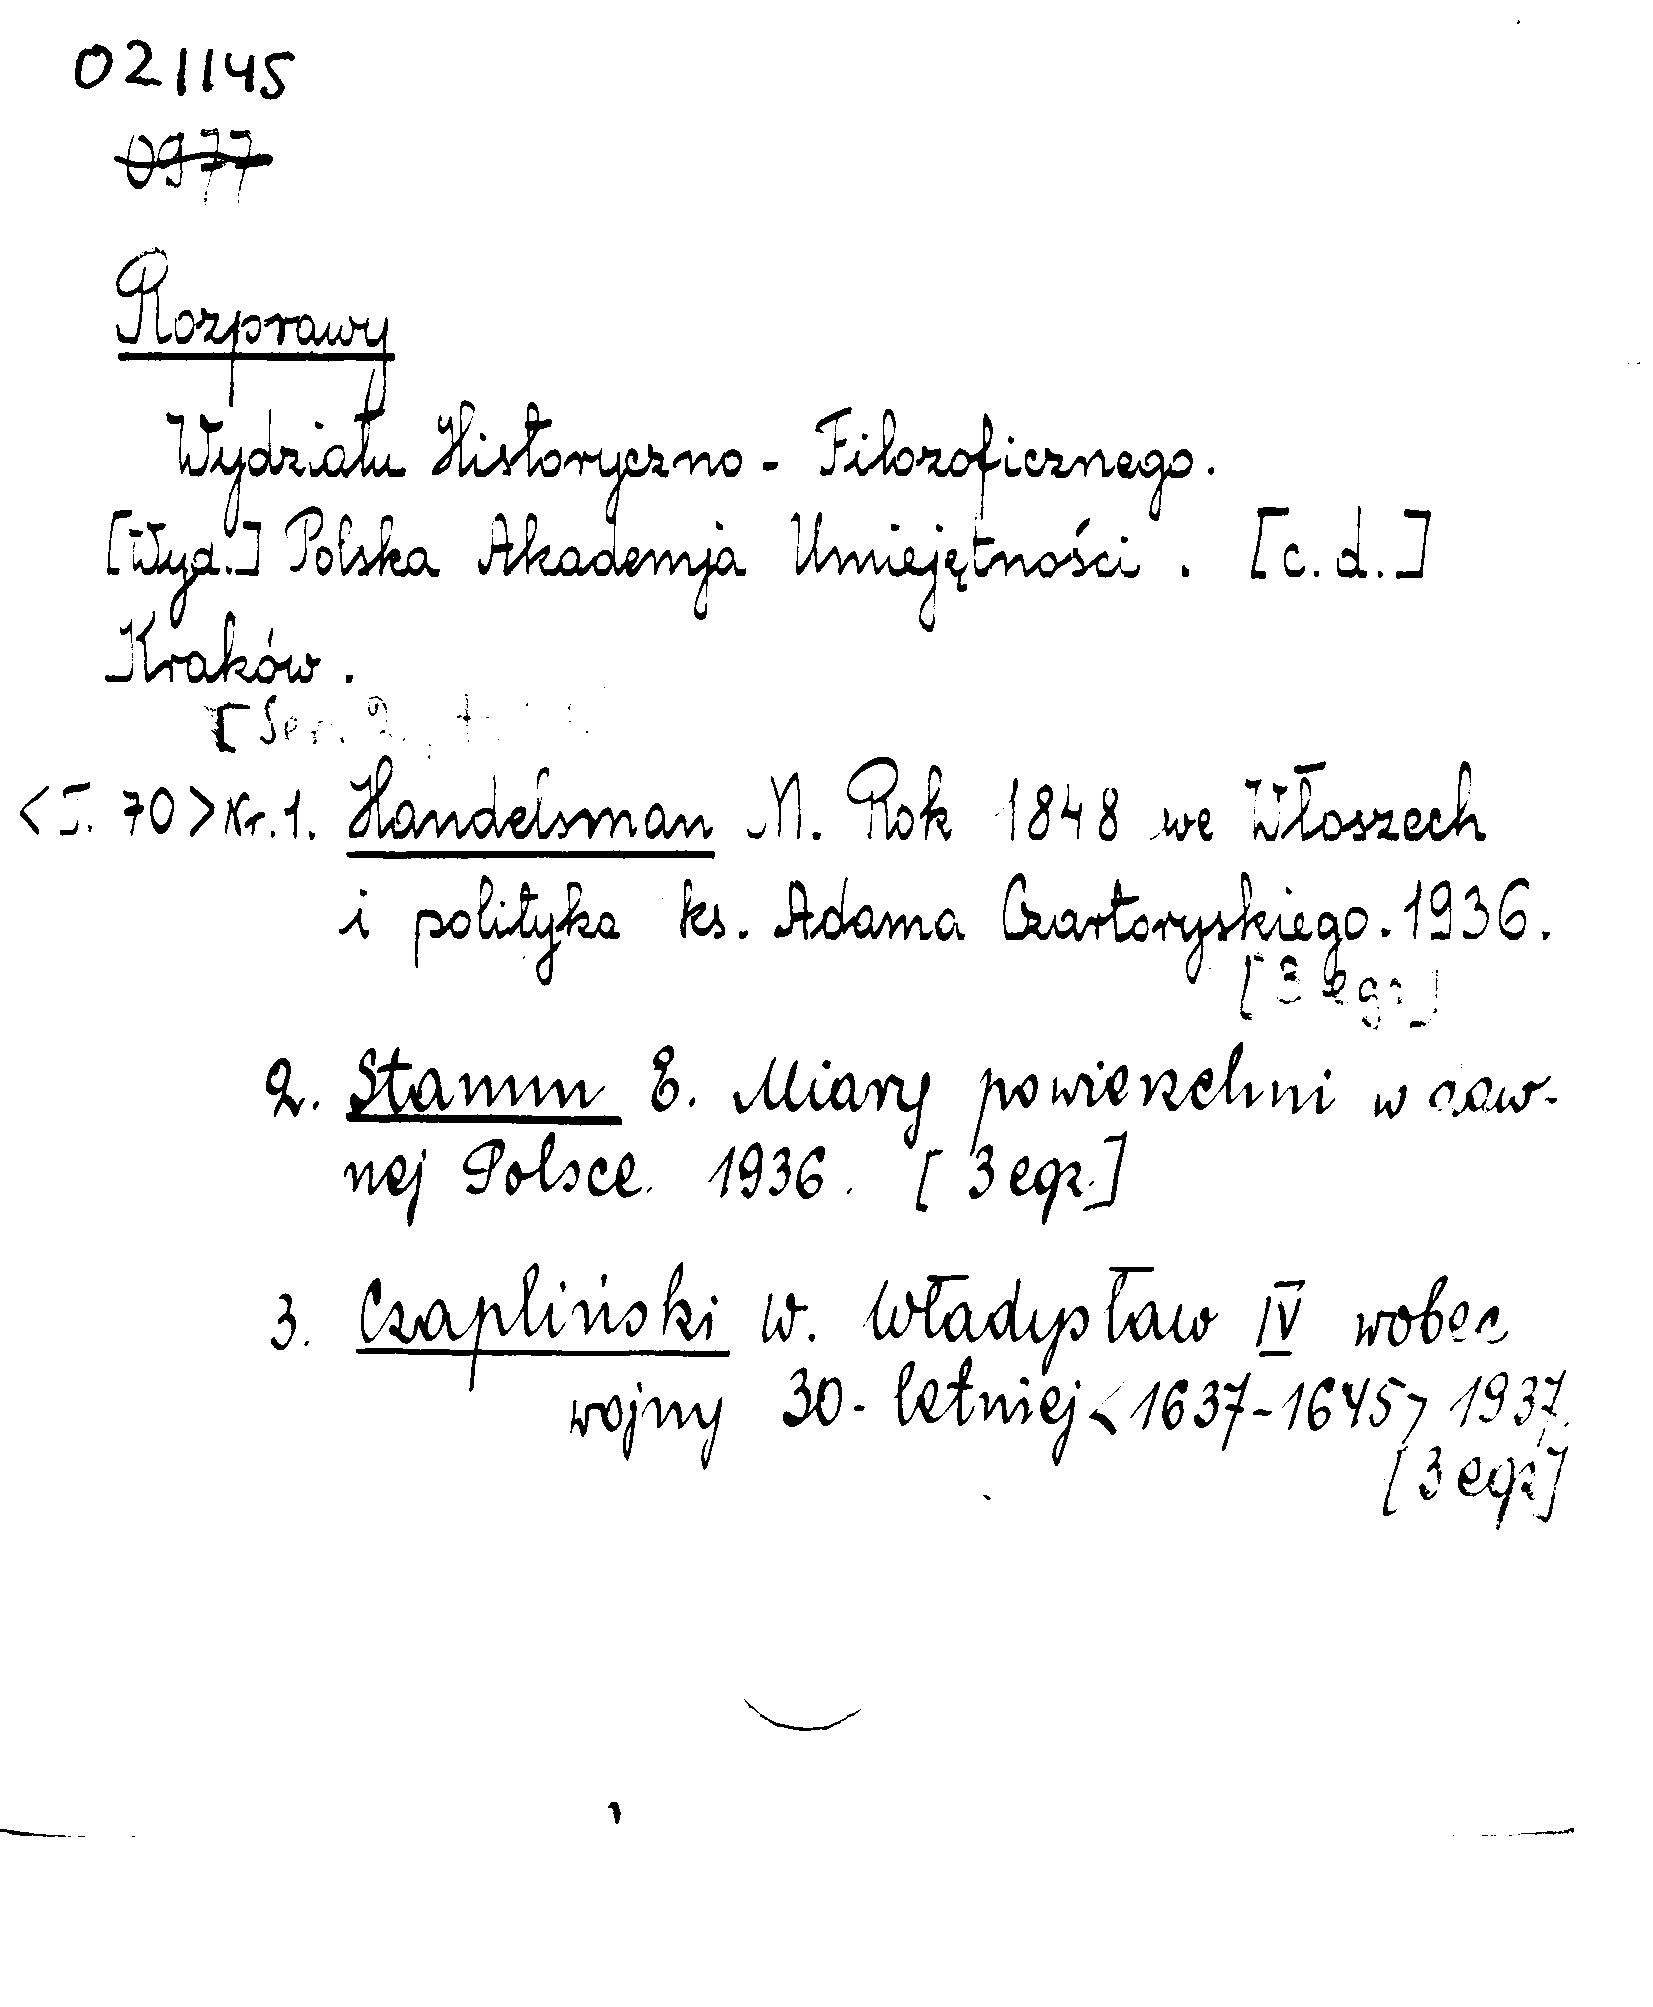 021145
0977
Rozprawy
Wydziału Historyczno - Filozoficznego.
[Wyd.] Polska Akademja Umiejętności. [c.d.]
Kraków.
[Ser. 2,
<T. 70> Nr. 1. Handelsman M. Rok 1848 we Włoszech
i polityka ks. Adama Czartoryskiego. 1936.
[3 egz]
2. Stamm E. Miary powierzchni w daw-
nej Polsce. 1936. [3 egz.]
3. Czapliński W. Władysław IV wobec
wojny 30-letniej <1637-1645> 1937.
[3 egz]